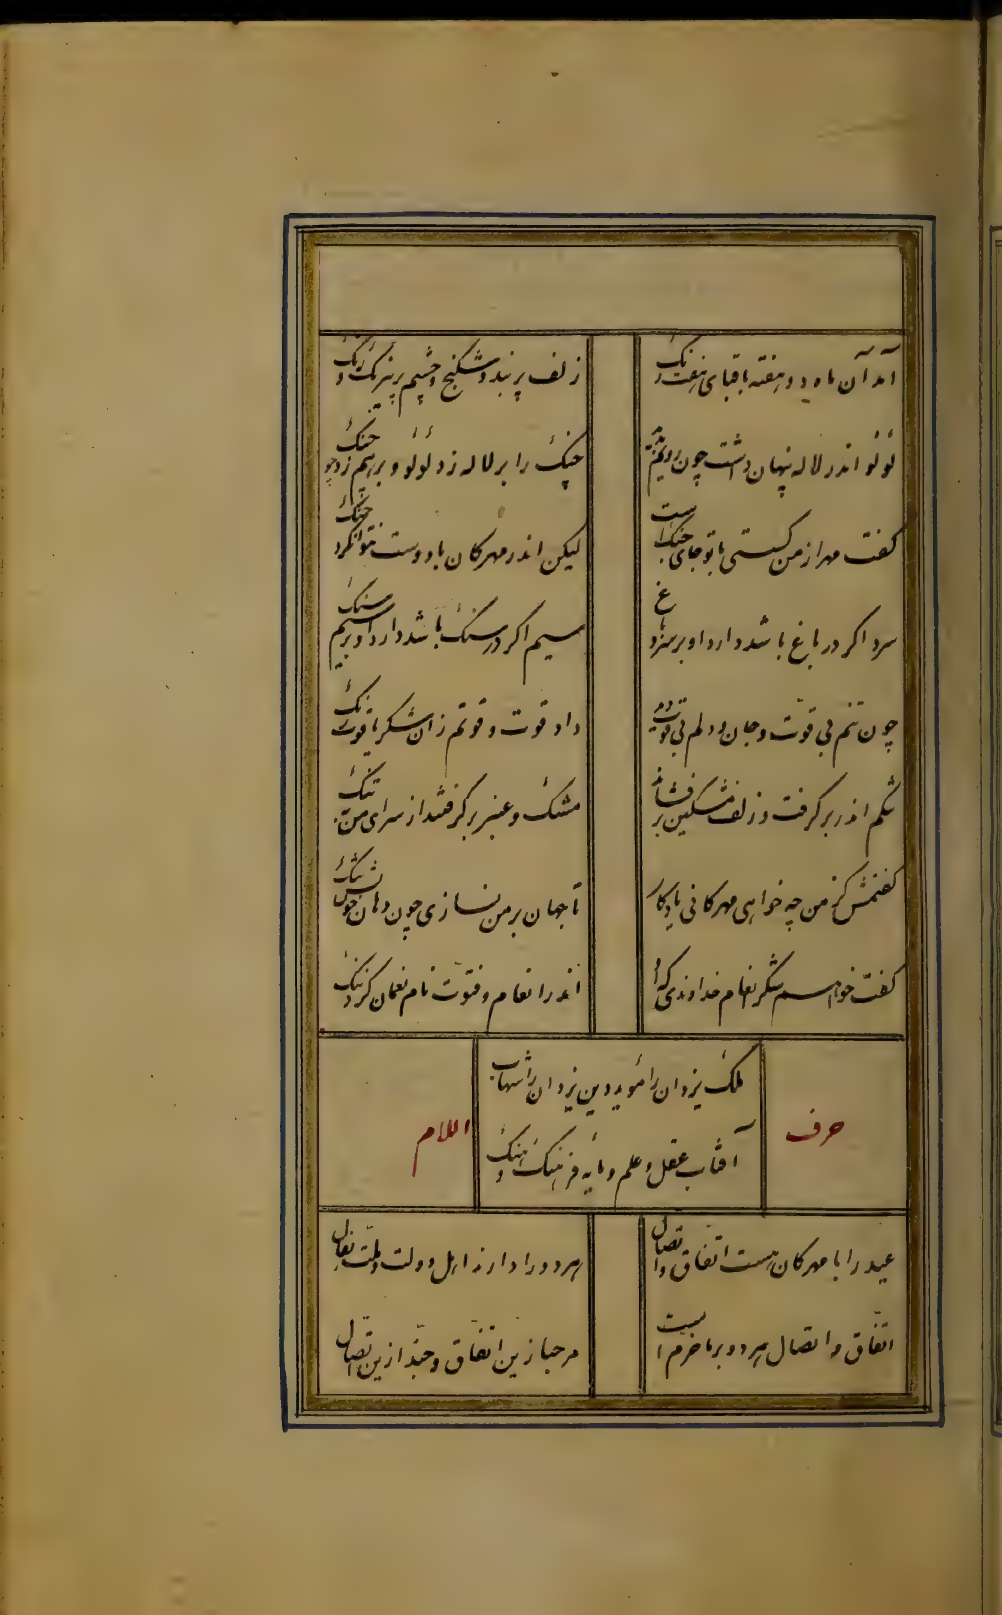 آمد آن ماه دو هفته با قبای هفت رنک
زلف پر بند و شکنج و چشم پر نیرنک و رنک
لؤلؤ اندر لاله پنهان داشت چون رویم بدید
چنک را بر لاله زد لؤلؤ و بر هم زد چو چنک
کفت مهر از من کسستی با تو جای جنک است
لیکن اندر مهرکان با دوست نتوان کرد جنک
سرد اکر در باغ باشد دارد او بر سرد باغ
سیم اکر در سنک باشد دارد او بر سیم سنک
چون تنم بی قوّت و جان و دلم بی قوت دید
داد قوت و قوتم زان شکر یاقوت رنک
تنکم اندر بر کرفت و زلف مشکین بر فشاند
مشک و عنبر بر کرفتند از سرای من تنک
کفتمش کز من چه خواهی مهرکانی یادکار
تا جهان بر من نسازی چون دهان خویش تنک
کفت خواهم شکر انعام خداوندی که او
اندر انعام و فتوّت نام نعمان کرد ننک
حرف
ملک یزدان را مؤید دین یزدان را شهاب
آفتاب عقل و علم و مایه فرهنک و هنک
اللام
عید را با مهرکان هست اتّفاق و اتصال
هر دو را دارند اهل دولت و ملّت بفال
اتّفاق و اتصال هر دو بر ما خرم است
مرحبا زین اتفاق و حبّذا زین اتّصال